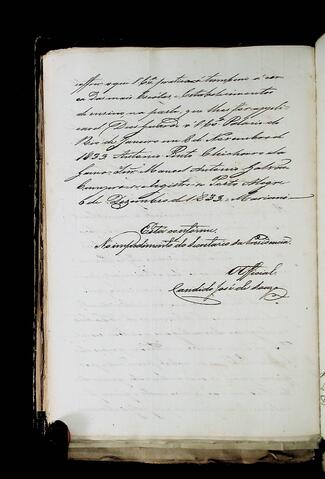 que V. Exª. pratica tambem á cer-
ca das mais Escolas e Estabelecimentos
de ensino na parte, que lhes for appli-
cavel Deos Guarde a V. Exª. Palacio do
Rio de Janeiro em 8 de Novembro de
1833 Antonio Pinto Chichorro da
Gama Sñr Manoel Antonio Galvão
Cumpra-se e registe-se Porto Alegre
6 de Dezembro de 1833. Mariani
Está conforme.
No impedimento do Secretario da Provincia.
O Official
Candido José de Souza